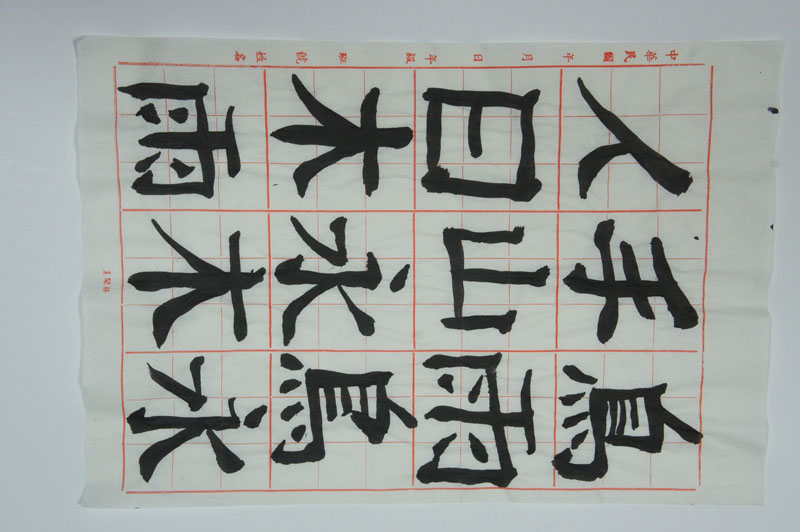 鳥雨鳥永
手山永木
人日木雨
中華民國 年 月 日 年級 班 號 姓名